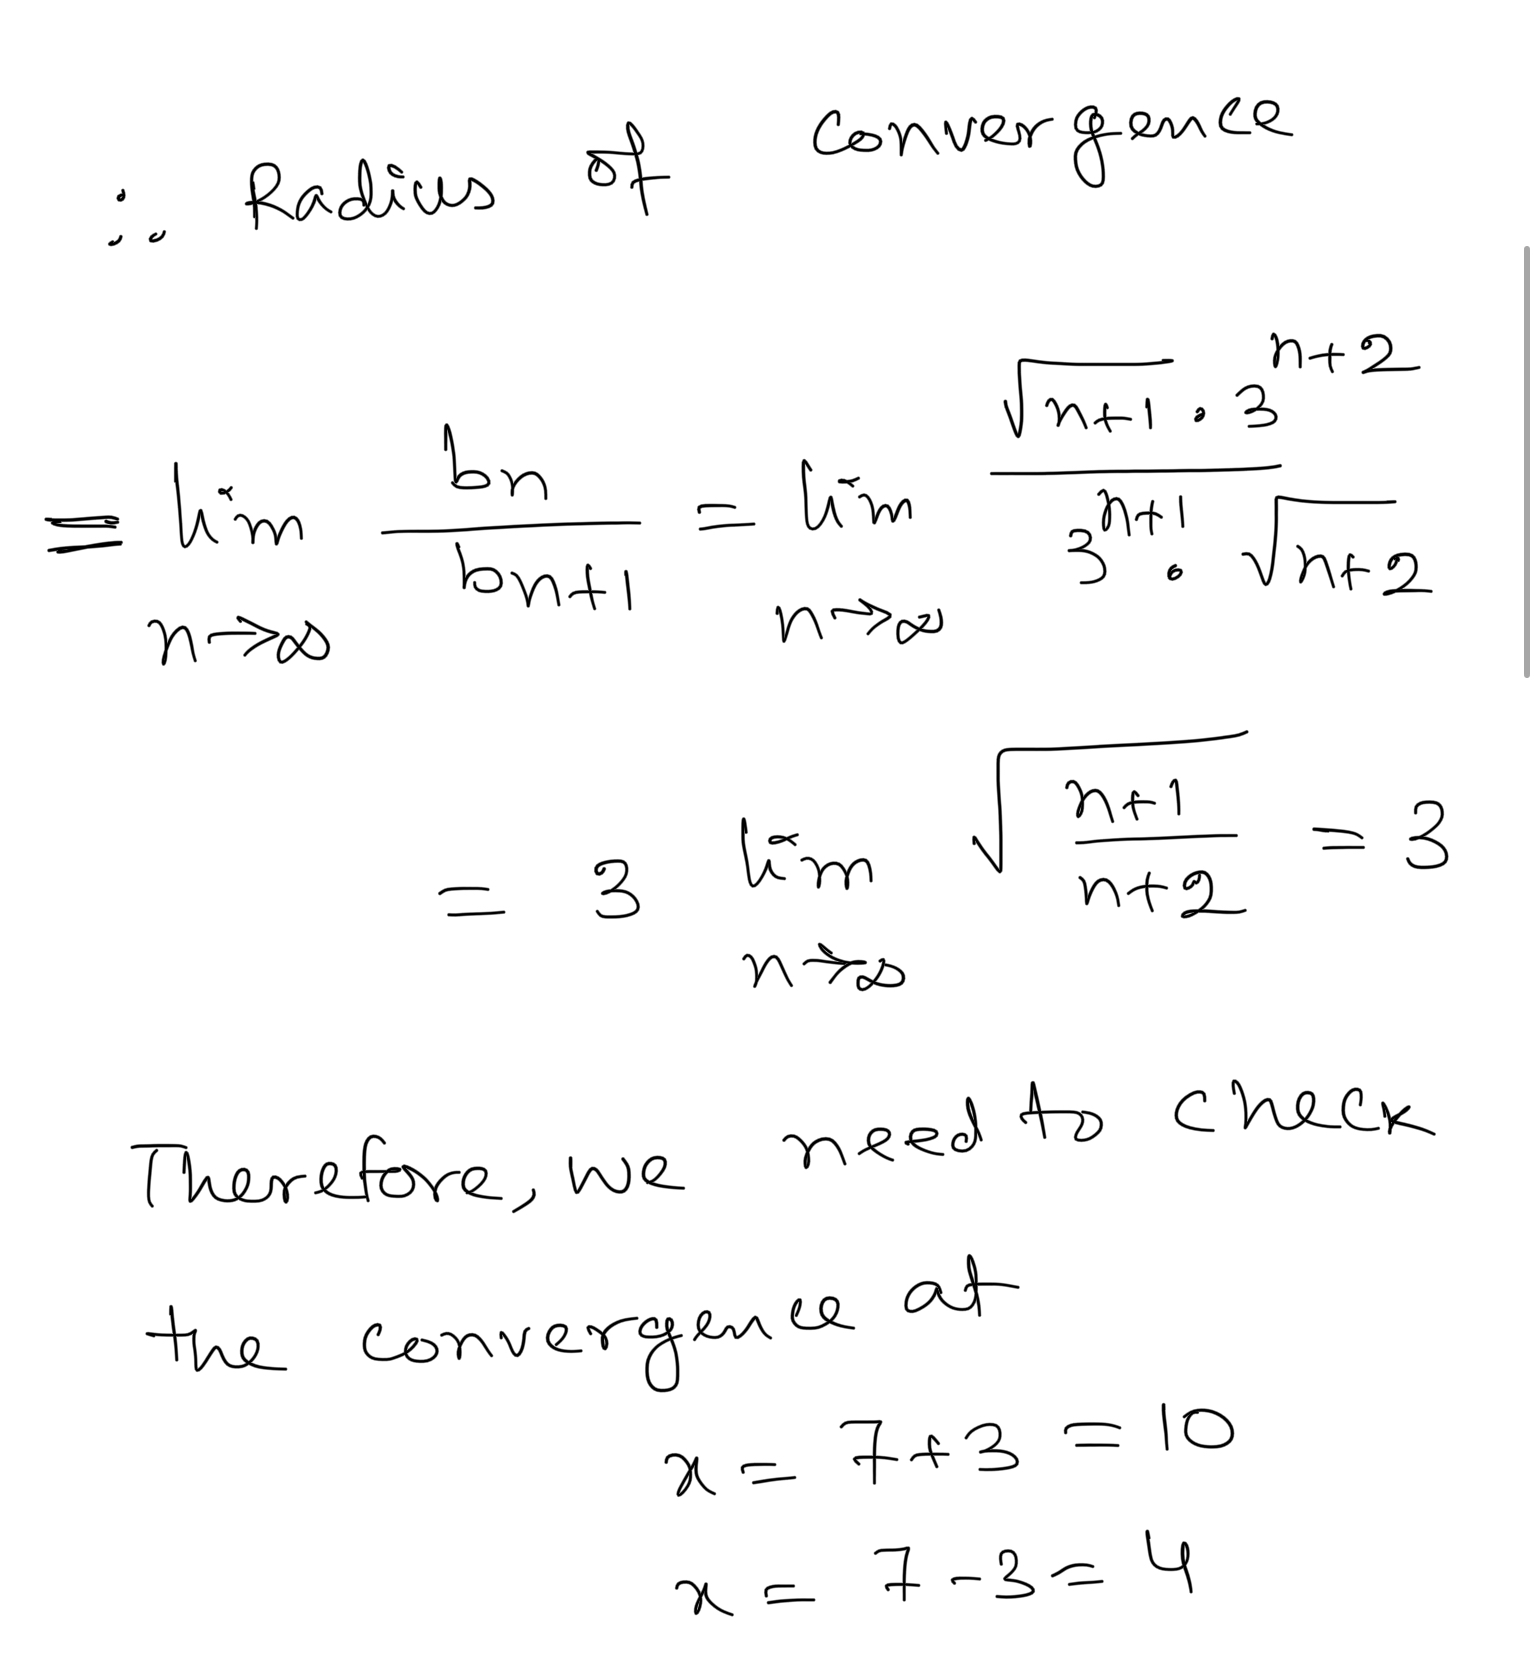 ∴ Radius of convergence
= lim n→∞ bn / bn+1 = lim n→∞ √n+1 · 3^n+2 / 3^n+1 · √n+2
= 3 lim n→∞ √(n+1 / n+2) = 3
Therefore, we need to check
the convergence at
x = 7+3 = 10
x = 7-3 = 4